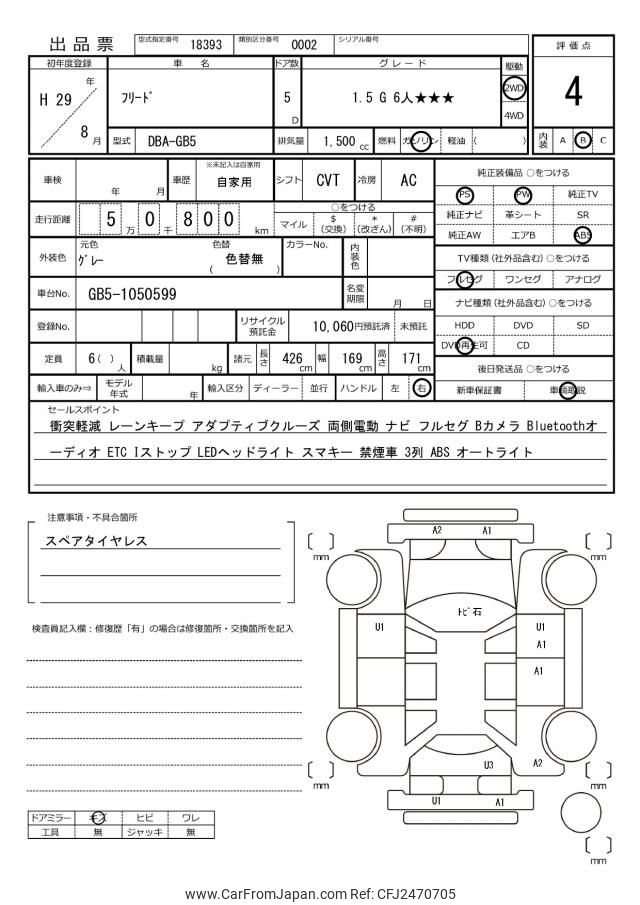 出品票
型式指定番号 18393 類別区分番号 0002 シリアル番号
評価点
4
内装 A B C
初年度登録 車名 ドア数 グレード 駆動
H 29 年 8 月
フリード 5 D 1.5 G 6人★★★ 2WD
4WD
型式 DBA-GB5 排気量 1,500 cc 燃料 ガソリン 軽油 ( )
車検 年 月 車歴 ※未記入は自家用 自家用 シフト CVT 冷房 AC
走行距離 5 万 0 千 8 0 0 km
○をつける
マイル $(交換) *(改ざん) #(不明)
外装色 元色 グレー 色替 ( 色替無 ) カラーNo. 内装色
車台No. GB5-1050599 名変期限 月 日
登録No. リサイクル預託金 10,060円預託済 未預託
定員 6( )人 積載量 kg 諸元 長さ 426 cm 幅 169 cm 高さ 171 cm
輸入車のみ⇒ モデル年式 年 輸入区分 ディーラー 並行 ハンドル 左 右
純正装備品 ○をつける
PS PW 純正TV
純正ナビ 革シート SR
純正AW エアB ABS
TV種類(社外品含む) ○をつける
フルセグ ワンセグ アナログ
ナビ種類(社外品含む) ○をつける
HDD DVD SD
DVD再生可 CD
後日発送品 ○をつける
新車保証書 車輌取説
セールスポイント
衝突軽減 レーンキープ アダプティブクルーズ 両側電動 ナビ フルセグ Bカメラ Bluetoothオ
ーディオ ETC Iストップ LEDヘッドライト スマキー 禁煙車 3列 ABS オートライト
注意事項・不具合箇所
スペアタイヤレス
検査員記入欄:修復歴「有」の場合は修復箇所・交換箇所を記入
ドアミラー キズ ヒビ ワレ
工具 無 ジャッキ 無
A2 A1
mm mm
トビ石
U1 U1
A1
A1
U3 A2
mm mm
U1 A1
mm
www.CarFromJapan.com Ref: CFJ2470705